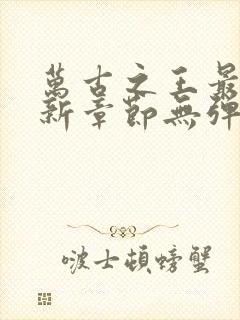 萬古之王最
新章節無彈
啵士頓螃蟹